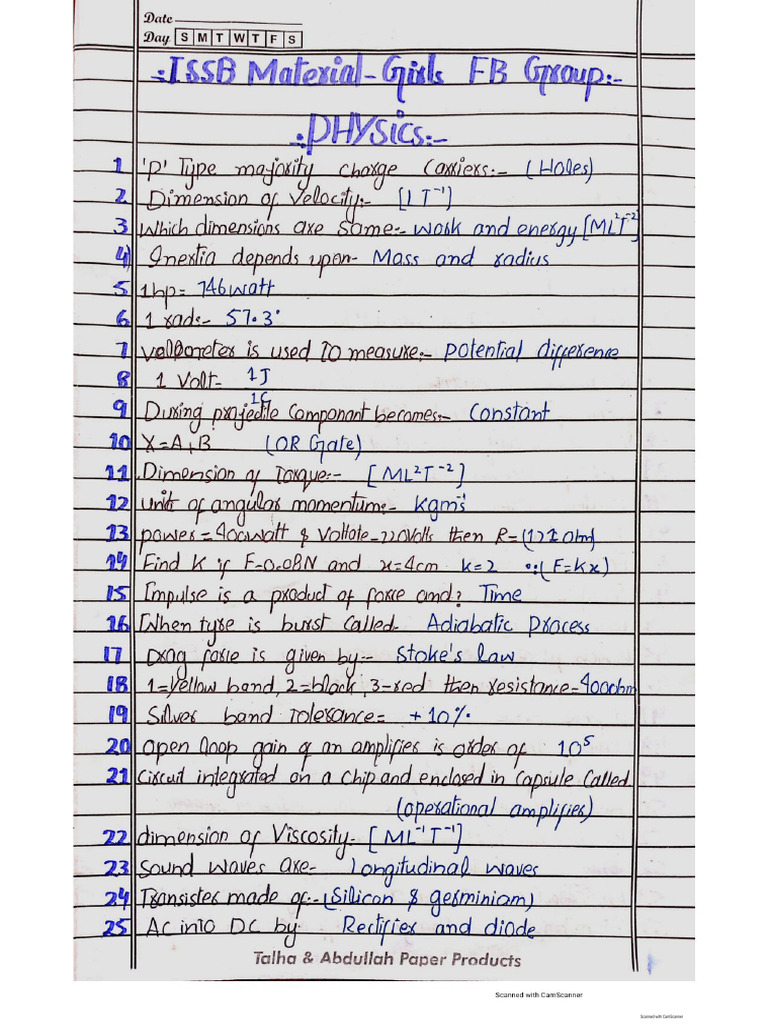 Date
Day S M T W T F S
:ISSB Material-Girls FB Group:-
.:PHYSICS:-
1 'P' Type majority charge Carriers:- (Holes)
2 Dimension of Velocity:- [LT⁻¹]
3 Which dimensions are same:- work and energy [ML²T⁻²]
4) Inertia depends upon- Mass and radius
5 1hp= 746watt
6 1 rad:- 57.3°
7 is used TO measure:- potential difference
8 1 Volt- 1J
1C
9 During projectile Componant becomes:- Constant
10 X=A+B (OR Gate)
11 Dimension of Torque:- [ML²T⁻²]
12 unit of angular momentum:- Kgm²s⁻¹
13 power=400watt & Voltate-220Volts then R=(121ohm)
14 Find K if F=0.08N and x=4cm k=2 ∵(F=Kx)
15 Impulse is a product of force and? Time
16 When tyre is burst called- Adiabatic Process
17 Drag force is given by:- Stoke's law
18 1=yellow band, 2=black, 3=red then resistance=400ohm
19 Silver band Tolerance= +10%.
20 open loop gain of an amplifier is order of 10⁵
21 Circuit integrated on a chip and enclosed in Capsule Called
(operational amplifier)
22 dimension of Viscosity:- [ML⁻¹T⁻¹]
23 Sound waves are- longitudinal waves
24 Transister made of:- (Silicon & germiniam)
25 AC into DC by. Rectifier and diode
Talha & Abdullah Paper Products
Scanned with CamScanner
Scanned with CamScanner